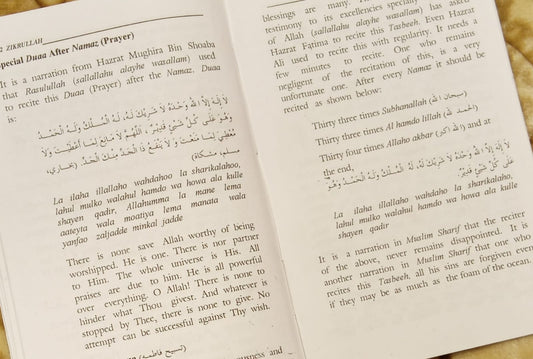 2 ZIKRULLAH
Special Duaa After Namaz (Prayer)
It is a narration from Hazrat Mughira Bin Shoaba
that Rasulullah (sallallahu alayhe wasallam) used
to recite this Duaa (Prayer) after the Namaz. Duaa
is:
لَا إِلٰهَ إِلَّا اللهُ وَحْدَهُ لَا شَرِيْكَ لَهُ لَهُ الْمُلْكُ وَلَهُ الْحَمْدُ
وَهُوَ عَلٰى كُلِّ شَيْئٍ قَدِيْرٌ، اَللّٰهُمَّ لَا مَانِعَ لِمَا أَعْطَيْتَ وَلَا
مُعْطِيَ لِمَا مَنَعْتَ وَلَا يَنْفَعُ ذَا الْجَدِّ مِنْكَ الْجَدُّ (بخاري،
مسلم، مشكاة)
La ilaha illallaho wahdahoo la sharikalahoo,
lahul mulko walahul hamdo wa howa ala kulle
shayen qadir, Allahumma la mane lema
aateyta wala moatiya lema manata wala
yanfao zaljadde minkal jadde
There is none save Allah worthy of being
worshipped. He is one. There is nor partner
to Him. The whole universe is His. All
praises are due to him. He is all powerful
over everything. O Allah! There is none to
hinder what Thou givest. And whatever is
stopped by Thee, there is none to give. No
attempt can be successful against Thy wish.
(تسبيح فاطمه)
ousness and
blessings are many.
testimony to its excellencies
of Allah (sallallahu alayhe wasallam) has asked
Hazrat Fatima to recite this Tasbeeh. Even Hazrat
Ali used to recite this with regularity. It needs a
few minutes to recite. One who remains
negligent of the recitation of this, is a very
unfortunate one. After every Namaz it should be
recited as shown below:
Thirty three times Subhanallah (سبحان الله)
Thirty three times Al hamdo lillah (الحمد لله)
Thirty four times Allaho akbar (الله اكبر) and at
the end,
لَا إِلٰهَ إِلَّا اللهُ وَحْدَهُ لَا شَرِيْكَ لَهُ، لَهُ الْمُلْكُ وَلَهُ الْحَمْدُ وَهُوَ
عَلٰى كُلِّ شَيْئٍ قَدِيْرٌ
La ilaha illallaho wahdaho la sharikalaho,
lahul mulko walahul hamdo wa howa ala kulle
shayen qadir
It is a narration in Muslim Sharif that the reciter
of the above, never remains disappointed. It is
another narration in Muslim Sharif that one who
recites this Tasbeeh, all his sins are forgiven even
if they may be as much as the foam of the ocean.